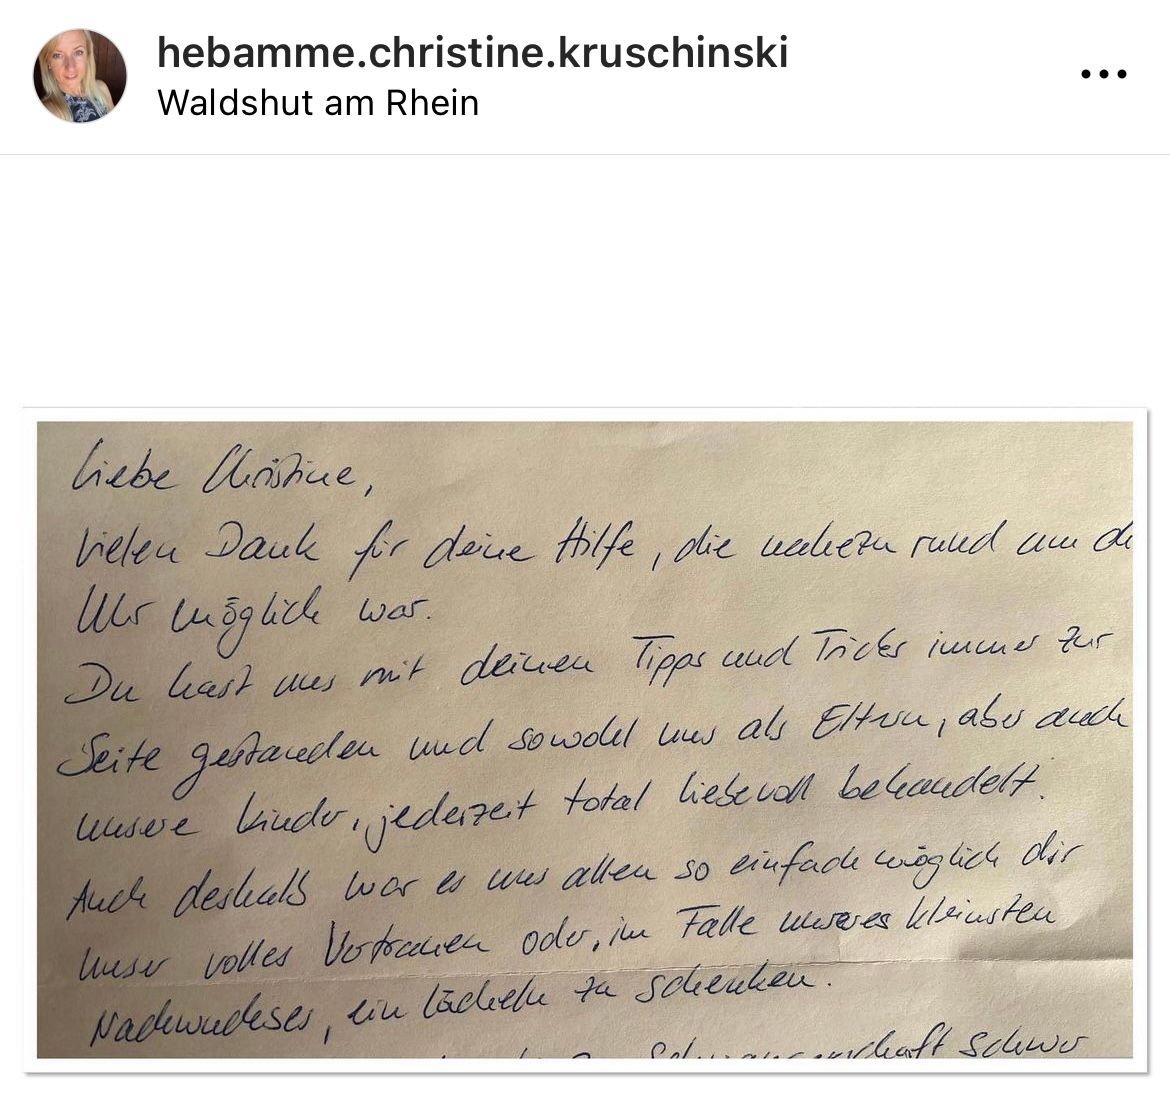 hebamme.christine.kruschinski
Waldshut am Rhein
Liebe Christine,
vielen Dank für deine Hilfe, die nahezu rund um d
Uhr möglich war.
Du hast uns mit deinen Tipps und Tricks immer zur
Seite gestanden und sowohl uns als Eltern, aber auch
unsere Kinder, jederzeit total liebevoll behandelt.
Auch deshalb war es uns allen so einfach möglich dir
unser volles Vertrauen oder, im Falle unseres kleinsten
Nachwuchses, ein lächeln zu schenken.
schwer